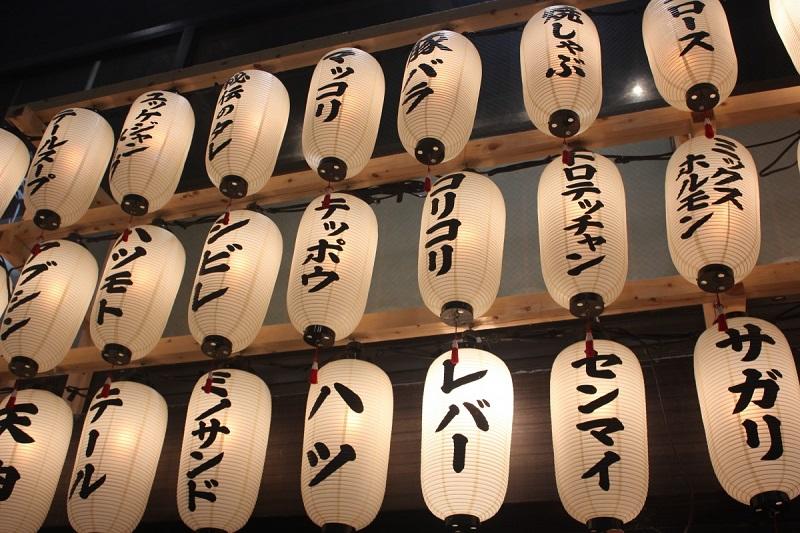 テールスープ
ユッケジャン
秘伝のタレ
マッコリ
豚バラ
焼しゃぶ
ロース
ハツモト
シビレ
テッポウ
コリコリ
ドロテッチャン
ミックス
ホルモン
テール
ミノサンド
ハツ
レバー
センマイ
サガリ